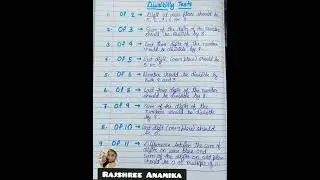 Divisibility Tests
1. OF 2 → Digit at ones place should be 0, 2, 4, 6 or 8
2. OF 3 → Sum of the digits of the number should be divisible by 3.
3. OF 4 → Last two digits of the number should be divisible by 4.
4. OF 5 → Last digit (ones place) should be 0 or 5
5. OF 6 → Number should be divisible by both 2 and 3
6. OF 8 → Last three digits of the number should be divisible by 8.
7. OF 9 → Sum of the digits of the number should be divisible by 9.
8. OF 10 → Last digit (ones place) should be 0.
9. OF 11 → Difference between the sum of digits on even place and sum of the digits on odd place should be 0 or multiple of 11.
RAJSHREE ANAMIKA